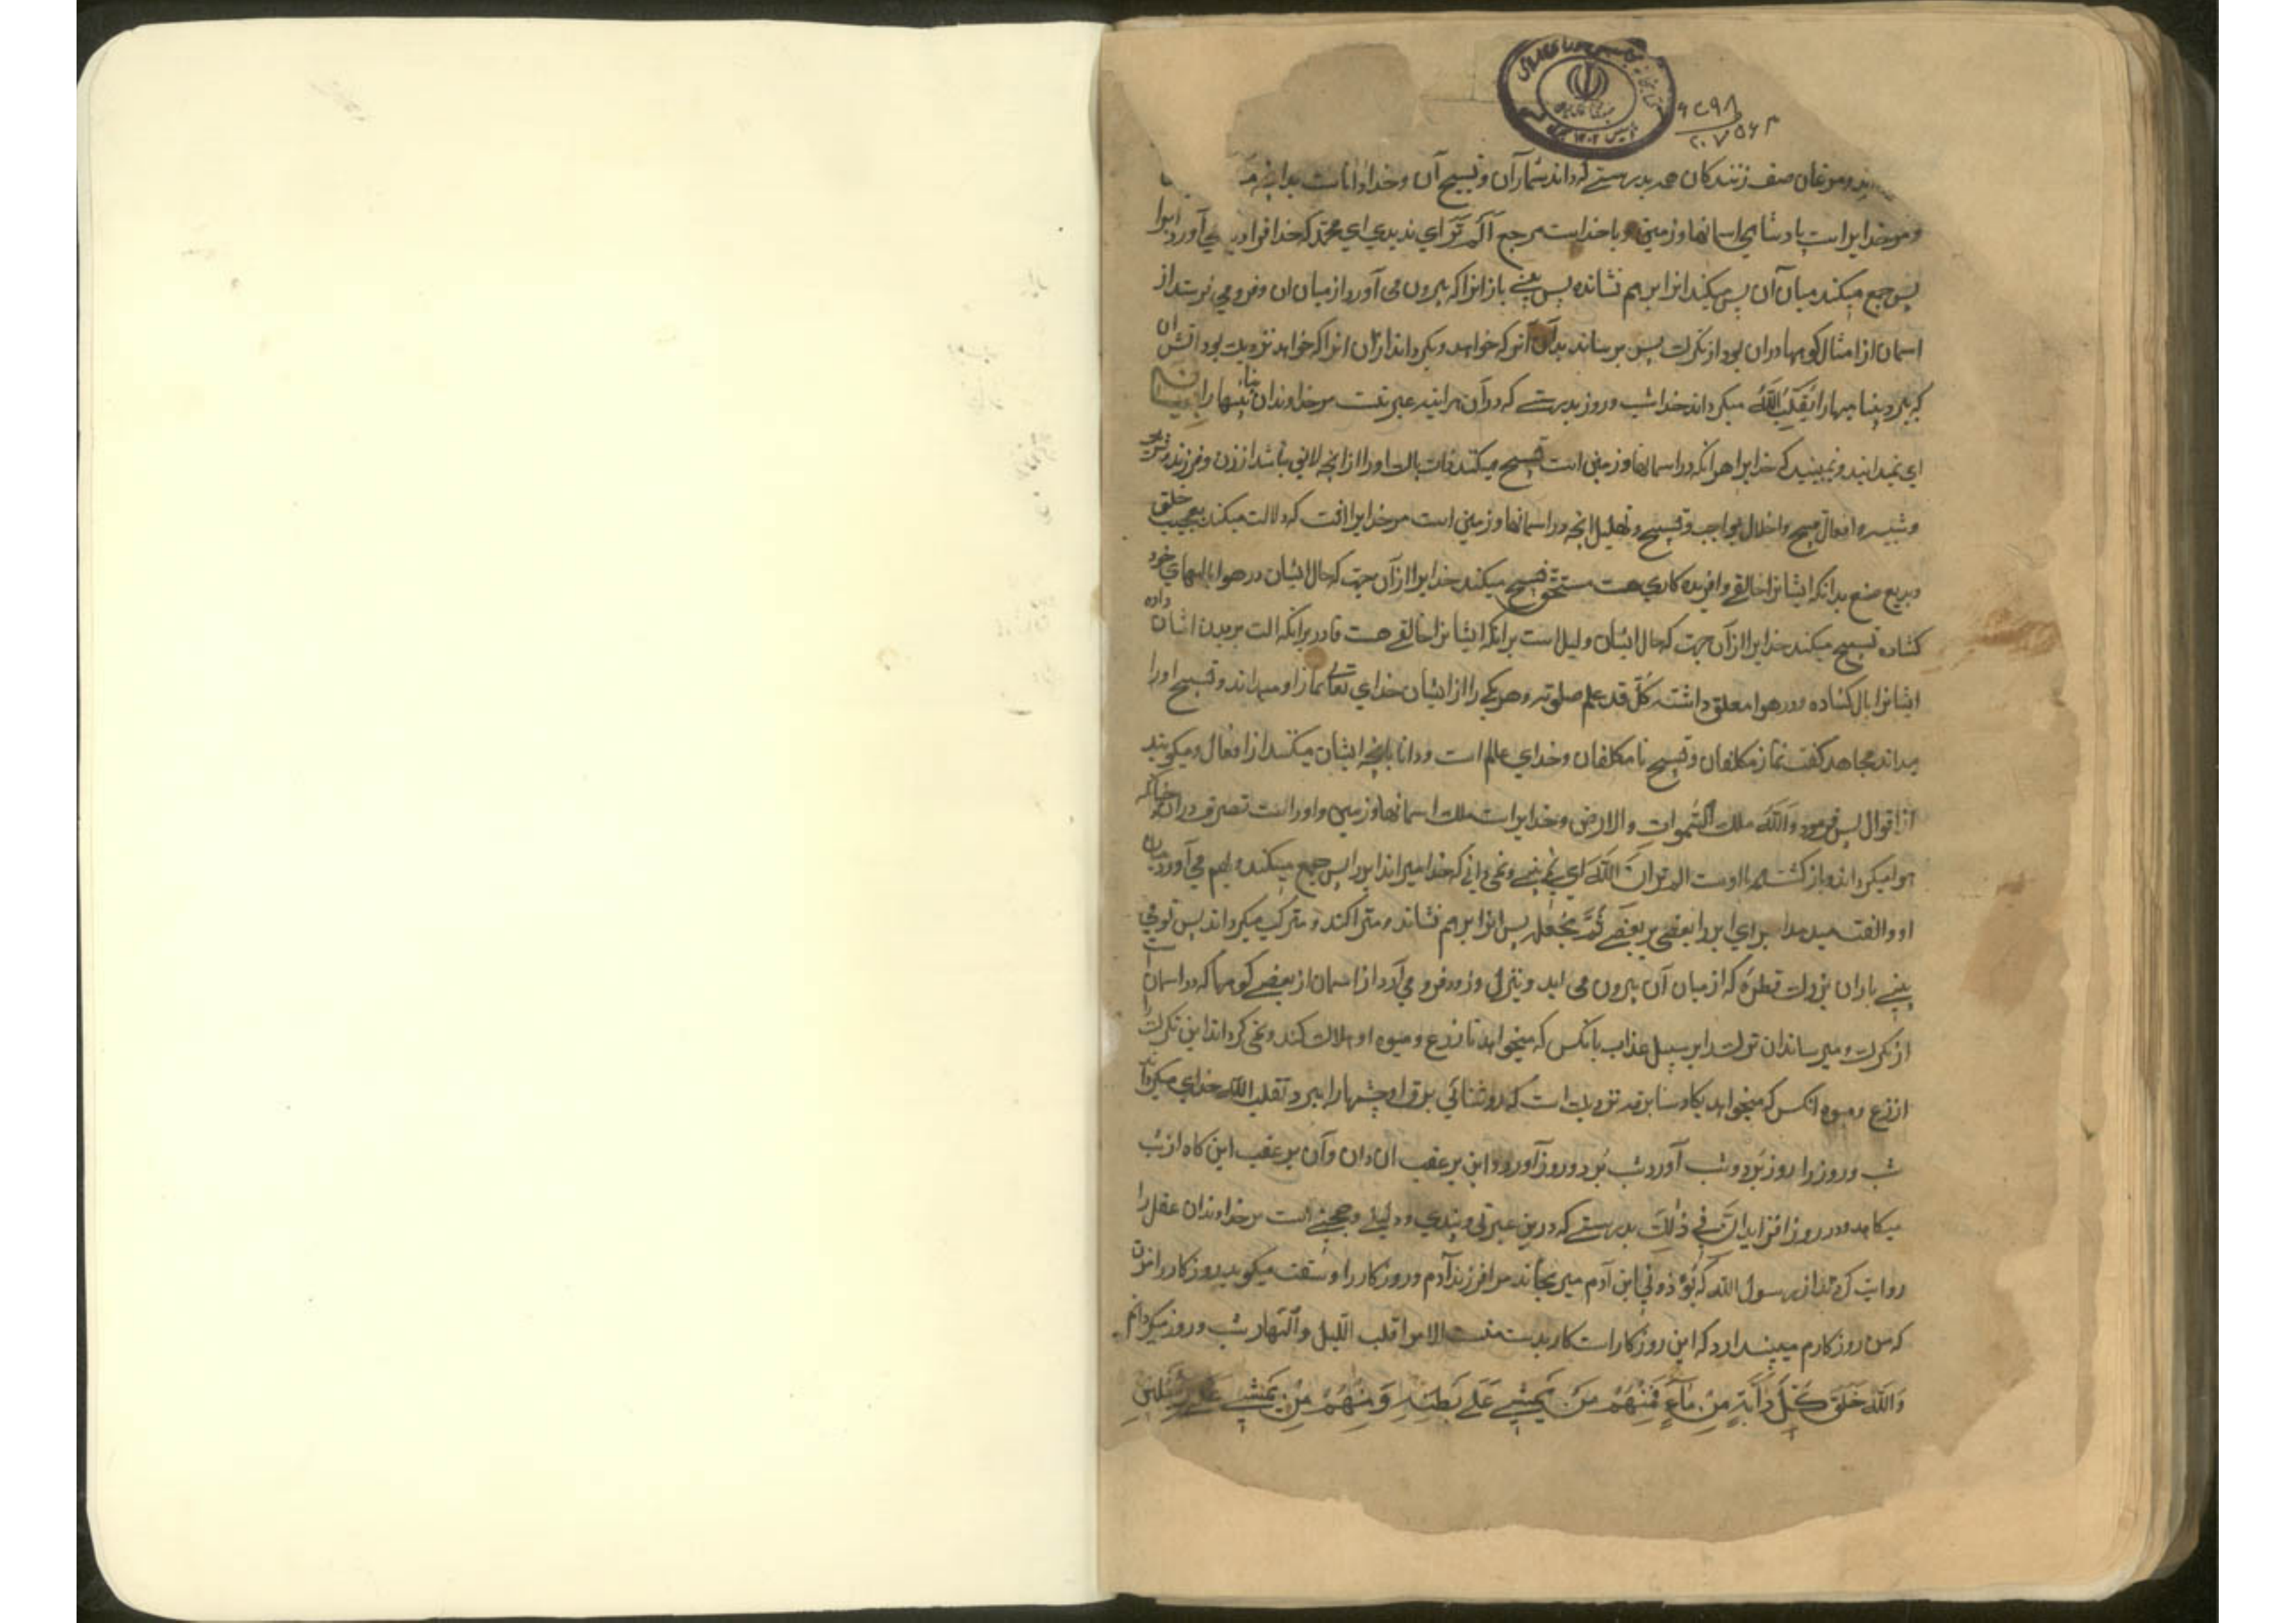 و مرغان صف زنندکان همه بدرستی که داند شمار آن و تسبیح آن و خدا داناست بدانچه
و مر خدایراست پادشاهی اسمانها و زمین و با خداست مرجع آلم تَرَ ای ندیدی ای محمد که خدا فرا می آورد ابرا
پس جمع میکند میان آن پس میکند انرا برهم نشانده پس بینی بارانرا که بیرون می آورد از میان ان و فرو می فرستد از
اسمان از امثال کوهها دران بود از تکرک پس برساند بدان آنرا که خواهد و بکرداند ازان انرا که خواهد نزدیک بود اتش ان
که ببرد بینایها را یُقَلِّبُ اللّٰهُ میکرداند خدا شب و روز بدرستی که در آن هراینه عبرتست مر خداوندان بینائیها را
ای نمیدانید و نمیبینید که خدایرا هرانکه در اسمانها و زمین است تسبیح میکند ذات پاک او را از آنچه لایق نباشد از زن و فرزند و شریک
و شبیه و افعال قبیح و اخلال بواجب و تسبیح و تهلیل انچه در اسمانها و زمین است مر خدایرا انست که دلالت میکند بعجیب خلق
و بدیع صنع بدانکه ایشانرا خالقی و افریدکاری هست مستحق تسبیح میکند خدایرا از آن جهت که حال ایشان در هوا بالهای خود
کشاده تسبیح میکند خدایرا از آن جهت که حال ایشان دلیل است برانکه ایشانرا خالقی هست قادر برانکه الت پریدن ایشان داده
ایشانرا بال کشاده و در هوا معلق داشته کُلّ قد علم صلوته و هر یکی را از ایشان خدای تعالی نماز او میداند و تسبیح او را
میداند مجاهد کفت نماز مکلفان و تسبیح نا مکلفان و خدای عالم است و دانا بانچه ایشان میکنند از افعال و میکویند
از اقوال پس فرمود وَاللّٰه ملک السّموات والارض و خدایراست ملک اسمانها و زمین و او راست تصرف دران چنانکه
هوا میکرداند و بازکشت همه با اوست الم تر ان اللّٰه ای نمی بینی و نمی دانی که خدا میراند ابر را پس جمع میکند و بهم می آورد میان
او و الفت میدهد برای ابر را بعضی بر بعضی ثُمَّ یجعله پس انرا برهم نشاند و متراکند و مترکب میکرداند پس تو می
بینی باران بزرک قطره که از میان آن بیرون می اید و ینزل و فرو می آرد از اسمان از بعضی کوهها که در اسمان است
از تکرک و میرساند ان تکرک را بر سبیل عذاب بانکس که میخواهد تا زرع و میوه او هلاک کند و نمی کرداند این تکرک را
از زرع و میوه انکس که میخواهد یکاد سنا برقه نزدیک است که روشنائی برق او چشمها را ببرد تقلب اللّٰه خدای میکرداند
شب و روز را روز بَرد و شب آورد شب بَرد و روز آورد و این بر عقب ان دان و آن بر عقب این کاه از شب
میکاهد و در روز افزاید انّ فی ذٰلِکَ بدرستی که درین عبرتی و پندی و دلیلی و حجتی است مر خداوندان عقل را
روایت کردند از رسول اللّٰه که یُؤذونی ابن آدم میرنجاند مرا فرزند آدم و روزکار را و سقت میکوید
که من روزکارم میپندارد که این روزکار است کار بدست منست الامر اقلب اللّیل والنّهار شب و روز میکردانم
وَاللّٰهُ خَلَقَ کُلَّ دَابَّةٍ مِنْ مَاءٍ فَمِنْهُمْ مَنْ یَمْشِی عَلَی بَطْنِهِ وَ مِنْهُمْ مَنْ یَمْشِی عَلَی رِجْلَیْنِ